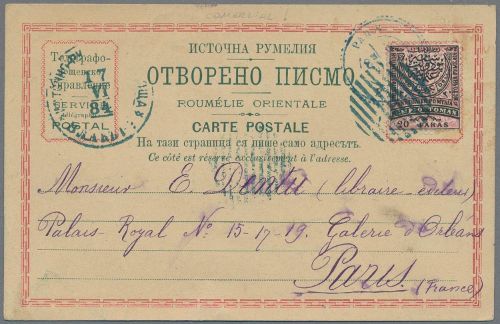 COMERCIAL !
ИСТОЧНА РУМЕЛИЯ
ОТВОРЕНО ПИСМО
ROUMÉLIE ORIENTALE
CARTE POSTALE
На тази страница ся пише само адресътъ.
Ce côté est réservé exclusivement à l'adresse.
Телеграфо-
управление
SERVICE
POSTAL
17
VI
84
20 PARAS
Monsieur E. Dentu (libraire éditeur)
Palais-Royal No 15-17-19. Galerie d'Orléans
Paris. (France)